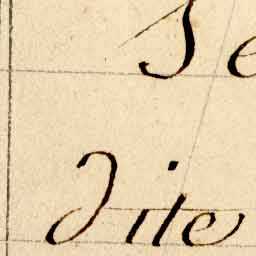 Se
dite